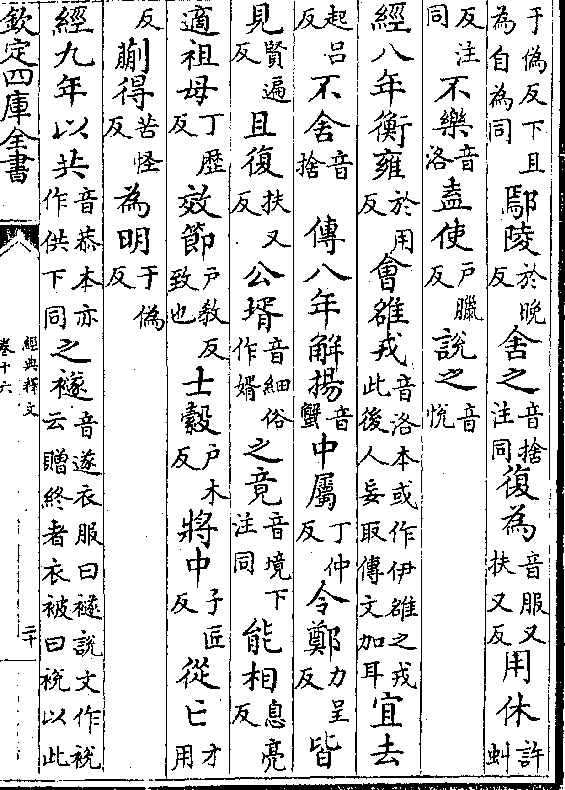 于偽反下且為自為同鄢陵於晚反舍之音捨注同復為音服又扶又反用休許虯
反注同不樂音洛盍使戶臘反說之音悅
經八年衡雍於用反會雒戎音洛本或作伊雒之戎此後人妄取傳文加耳宜去
起呂反不舍音捨傳八年解揚音蟹中屬丁仲反令鄭力呈反皆
見賢遍反且復扶又反公壻音細俗作婿之竟音境下注同能相息亮反
適祖母丁歷反效節戶教反致也士縠戶木反將中子匠反從亡才用
反蒯得苦怪反為明于偽反
經九年以共音恭本亦作供下同之襚音遂衣服曰襚說文作裞云贈終者衣被曰裞以此
欽定四庫全書
經典釋文
卷十六
二十